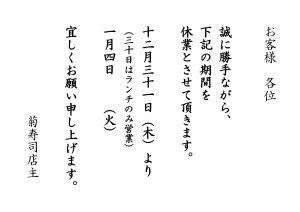 お客様　各位
誠に勝手ながら、
下記の期間を
休業とさせて頂きます。
十二月三十一日（木）より
（三十日はランチのみ営業）
一月四日　（火）
宜しくお願い申し上げます。
菊寿司店主